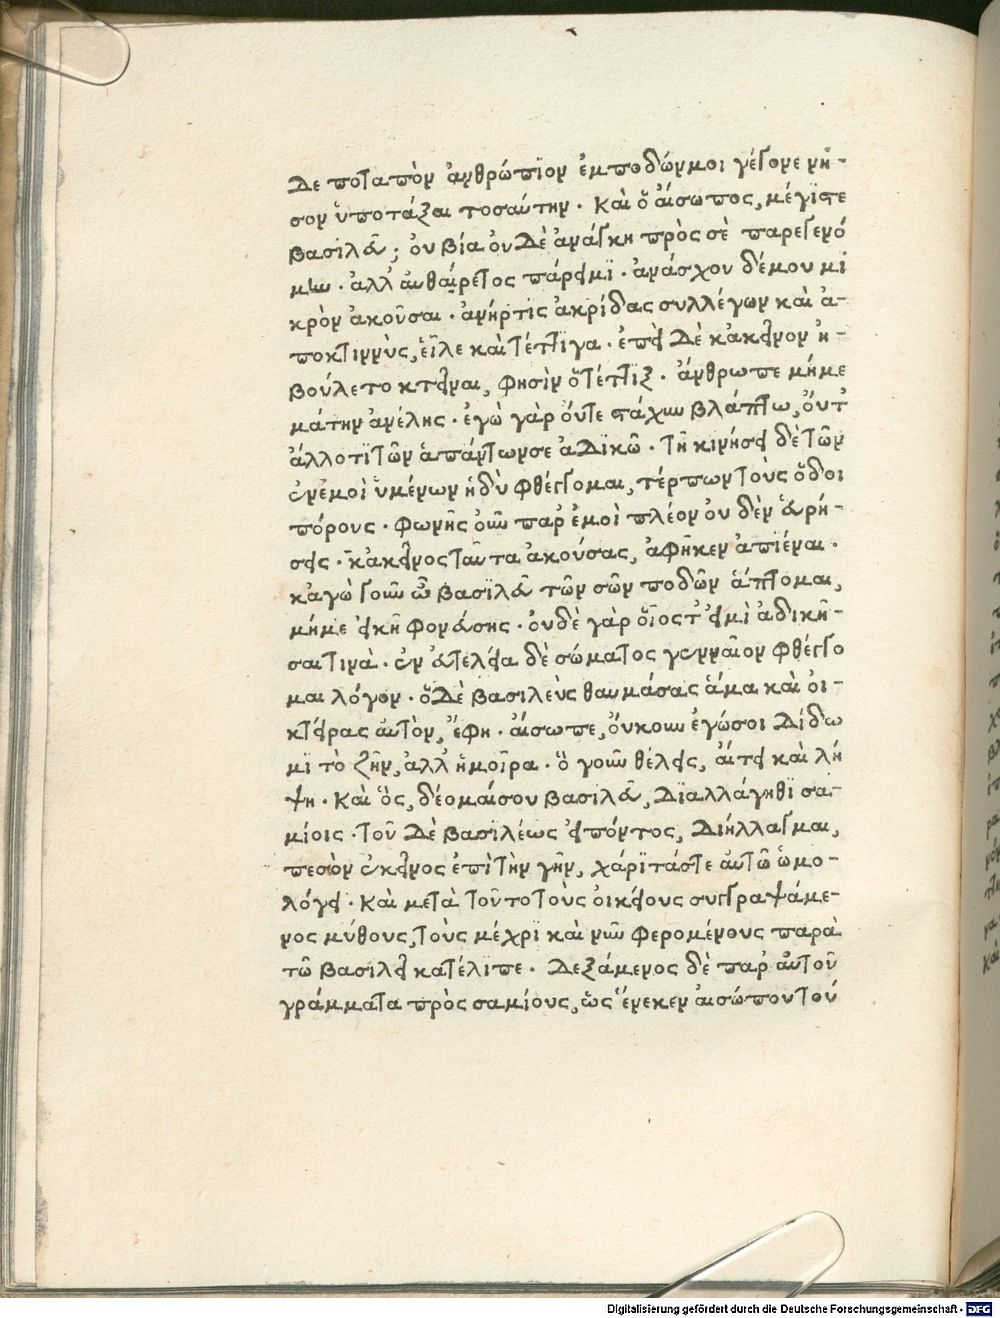 δε ποταπὸν ἀνθρώπϊον ἐμποδών μοι γέγονε νῆ-
σον ὑποτάξαι τοσαύτην. Καὶ ὁ αἴσωπος, μέγιστε
βασιλεῦ; οὐ βία οὐ δὲ ἀνάγκη πρὸς σὲ παρεγενό
μην. ἀλλ' αὐθαίρετος πάρειμϊ. ἀνάσχου δέ μου μι
κρὸν ἀκοῦσαι. ἀνήρ τις ἀκρίδας συλλέγων καὶ ἀ-
ποκτιννὺς, εἷλε καὶ τέττιγα. ἐπεὶ δὲ κἀκεῖνον ἠ-
βούλετο κτεῖναι, φησὶν ὁ τέττιξ. ἄνθρωπε μή με
μάτην ἀνέλῃς. ἐγὼ γὰρ οὔτε στάχυν βλάπτω, οὔτ'
ἄλλο τϊ τῶν ἁπάντων σε ἀδϊκῶ. τῇ κινήσει δὲ τῶν
ἐν ἐμοὶ ὑμένων ἡδὺ φθέγγομαι, τέρπων τοὺς ὁδοι
πόρους. φωνῆς οὖν παρ' ἐμοὶ πλέον οὐ δὲν εὑρή-
σεις. κἀκεῖνος ταῦτα ἀκούσας, ἀφῆκεν ἀπϊέναι.
κἀγὼ γοῦν ὦ βασϊλεῦ τῶν σῶν ποδῶν ἅπτομαι,
μή με εἰκῆ φονεύσῃς. οὐδὲ γὰρ οἷός τ' εἰμὶ ἀδικῆ-
σαι τινὰ. ἐν εὐτελεία δὲ σώματος γενναῖον φθέγγο
μαι λόγον. ὁ δὲ βασιλεὺς θαυμάσας ἅμα καὶ οἰ-
κτείρας αὐτὸν, ἔφη. αἴσωπε, οὐκ ουν ἐγώ σοι δίδω
μϊ τὸ ζῆν, ἀλλ' ἡ μοῖρα. ὃ γοῦν θέλεις, αἴτει καὶ λή
ψῃ. Καὶ ὃς, δέομαί σου βασιλεῦ, διαλλάγηθϊ σα-
μίοις. τοῦ δὲ βασϊλέως εἰπόντος, διήλλαγμαι,
πεσὼν ἐκεῖνος ἐπὶ τὴν γῆν, χάρϊτάς τε αὐτῶ ὡμο-
λόγει. Καὶ μετὰ τοῦτο τοὺς οἰκείους συγγραψάμε-
νος μύθους, τοὺς μέχρϊ καὶ νῦν φερομένους παρὰ
τῶ βασιλεῖ κατέλιπε. δεξάμενος δὲ παρ' αὐτοῦ
γράμματα πρὸς σαμίους, ὡς ἕνεκεν αἰσώπου τού
Digitalisierung gefördert durch die Deutsche Forschungsgemeinschaft - DFG